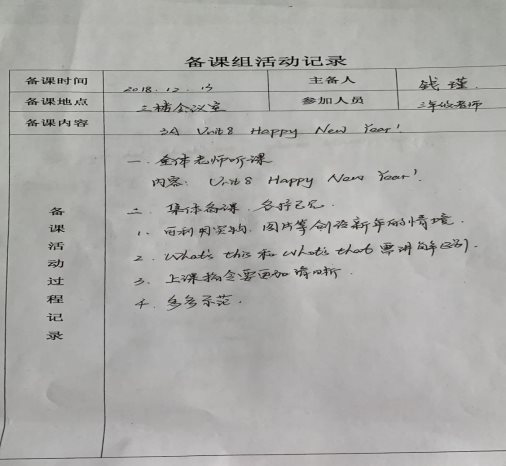 备课组活动记录
备课时间 2018.12.13 主备人 钱瑾
备课地点 三楼会议室 参加人员 三年级老师
备课内容 3A Unit 8 Happy New Year!
备课活动过程记录
一. 全体老师听课
内容: Unit 8 Happy New Year!
二. 集体备课, 各抒己见.
1. 可利用实物, 图片等创设新年的情境.
2. What's this 和 What's that 要讲解区别.
3. 上课指令要更加清晰.
4. 多多示范.